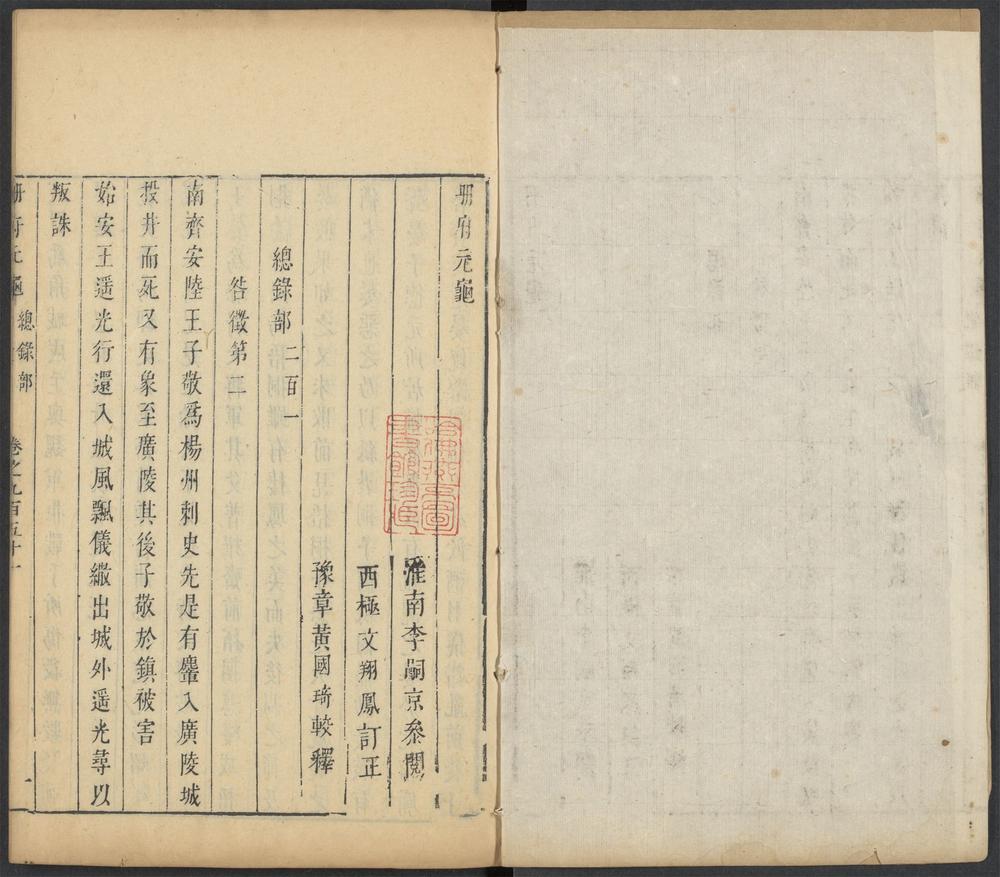 冊府元龜
淮南李嗣京叅閱
西極文翔鳳訂正
豫章黃國琦較釋
總錄部 二百一
咎徵第二
南齊安陸王子敬爲楊州刺史先是有麞入廣陵城
投井而死又有象至廣陵其後子敬於鎮被害
始安王遥光行還入城風飄儀繖出城外遥光尋以
叛誅
冊府元龜 總錄部 卷之九百五十一 一